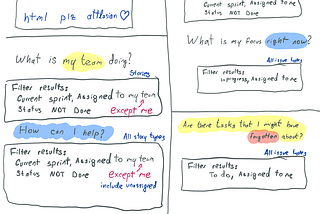 html plz atlassian
What is my team doing?
Stories
Filter results:
Current sprint, Assigned to my team
Status NOT Done
except me
How can I help?
All story types
Filter results:
Current sprint, Assigned to my team
Status NOT Done
except me
include unassigned
Current sprint, Assigned to me
Status NOT Done
What is my focus right now?
All issue types
Filter results:
In progress, Assigned to me
Are there tasks that I might have
forgotten about?
All issue types
Filter results:
To do, Assigned to me